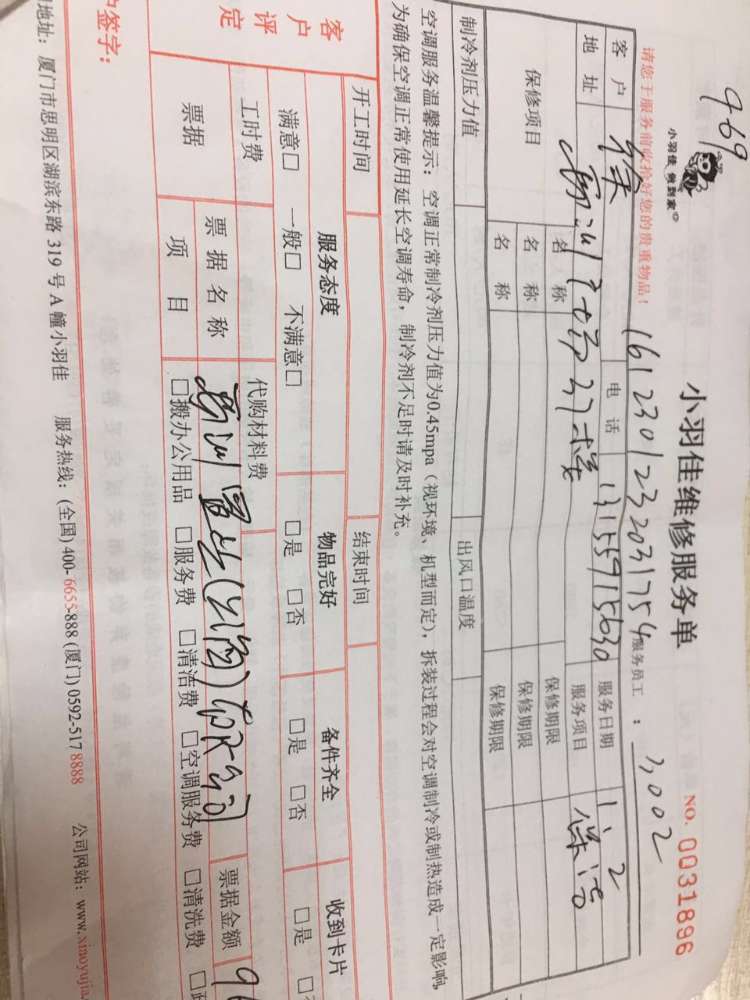 969
小羽佳 做到家
小羽佳维修服务单
NO. 0031896
请您于服务前收拾好您的贵重物品！
服务员工：3002
客户 电话 服务日期 1.2
地址 服务项目 保洁
保修项目 名称 保修期限
名称 保修期限
名称 保修期限
制冷剂压力值 出风口温度
空调服务温馨提示：空调正常制冷剂压力值为0.45mpa（视环境、机型而定），拆装过程会对空调制冷或制热造成一定影响，
为确保空调正常使用延长空调寿命，制冷剂不足时请及时补充。
开工时间 结束时间
客户评定 服务态度 物品完好 备件齐全 收到卡片
满意□ 一般□ 不满意□ □是 □否 □是 □否 □是
工时费 代购材料费
票据 票据名称 票据金额
项目 □搬办公用品 □服务费 □清洁费 □空调服务费 □清洗费
签字：
地址：厦门市思明区湖滨东路 319 号 A 幢小羽佳 服务热线：(全国) 400-6655-888 (厦门) 0592-517 8888 公司网站：www.xiaoyujia.